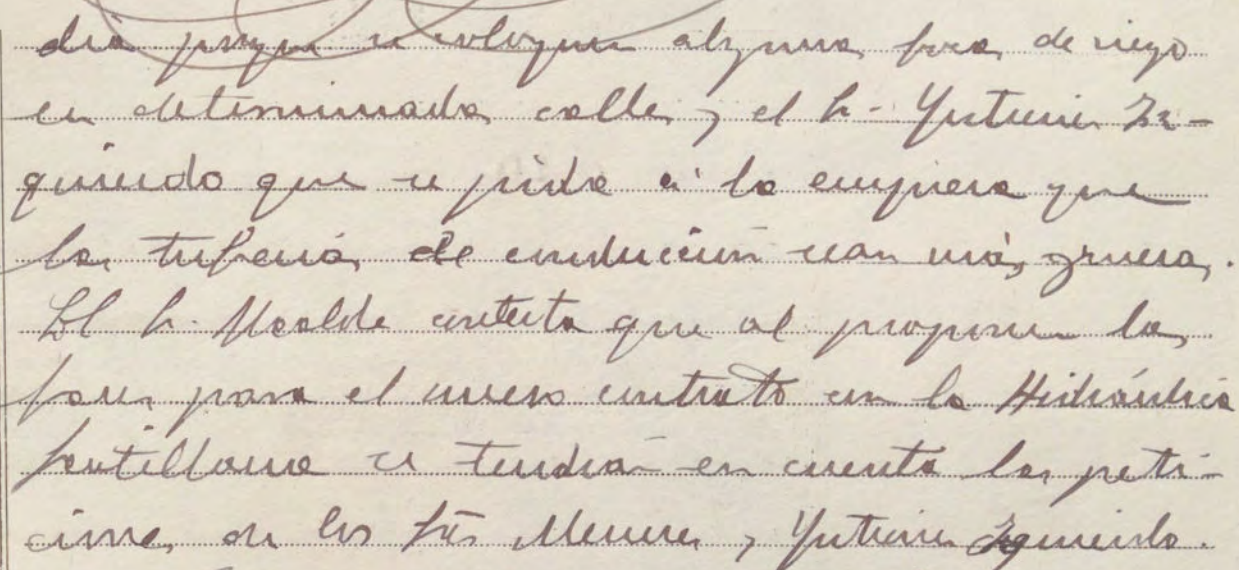 dia para que se coloquen algunas bocas de riego
en determinadas calles, y el Sr. Gutierrez Iz-
quierdo que se pida á la empresa que
las tuberias de conducción sean más gruesas.
El Sr. Alcalde contesta que al proponer las
bases para el nuevo contrato con la Hidráulica
Santillana se tendrán en cuenta las peti-
ciones de los Sres Meneses y Gutierrez Izquierdo.